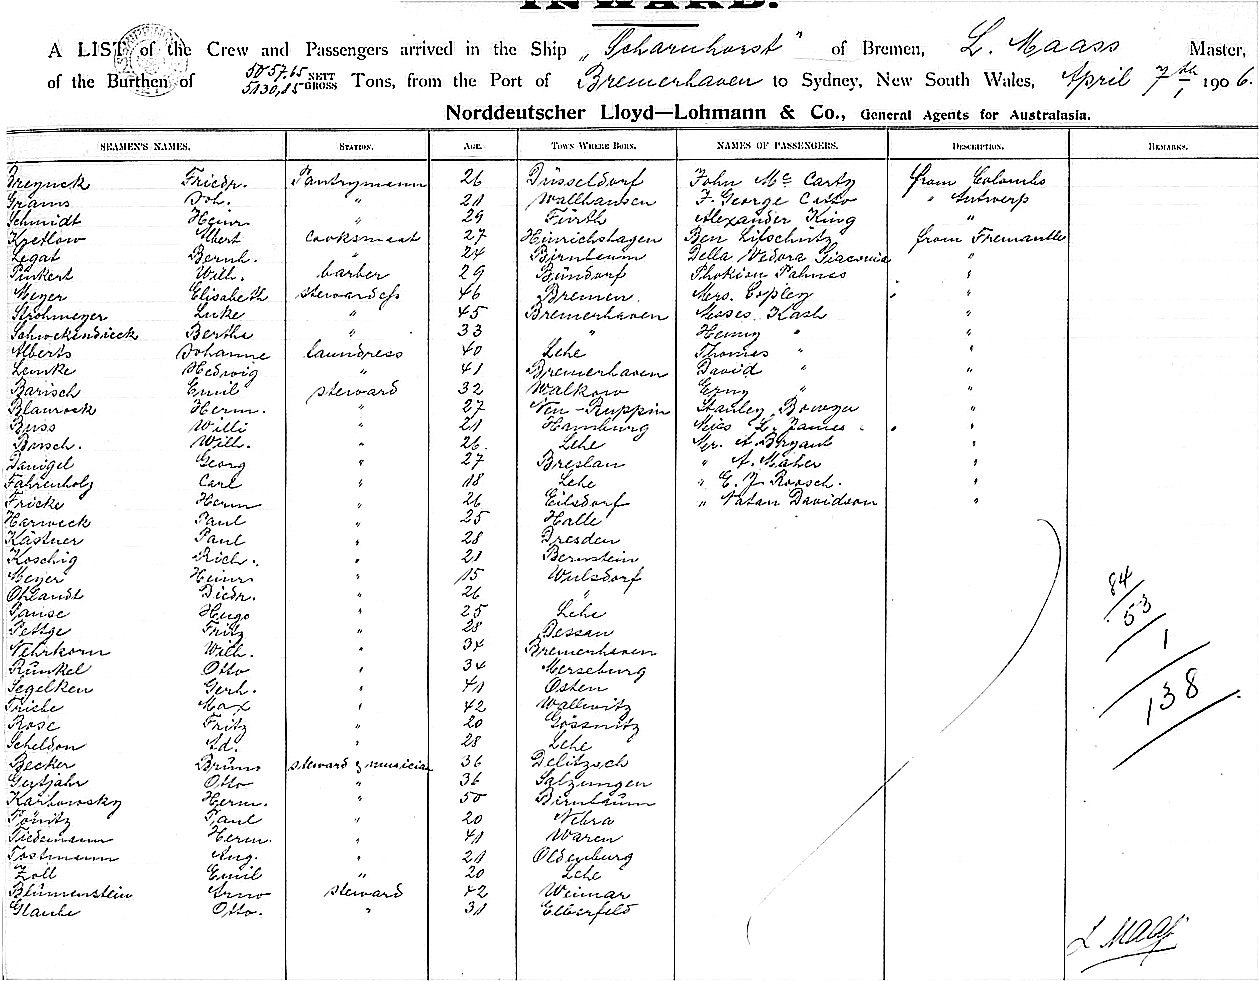 INWARD.
A LIST of the Crew and Passengers arrived in the Ship „Scharnhorst" of Bremen, L. Maass Master,
of the Burthen of 5057,65 NETT 5130,85 GROSS Tons, from the Port of Bremerhaven to Sydney, New South Wales, April 7th 1906.
Norddeutscher Lloyd—Lohmann & Co., General Agents for Australasia.
SEAMEN'S NAMES. STATION. AGE. TOWN WHERE BORN. NAMES OF PASSENGERS. DESCRIPTION. REMARKS.
Greynck Friedr. Pantrymann 26 Düsseldorf John Mc Carty from Colombo
Grams Joh. " 21 Wallhausen F. George Catto " Antwerp
Schmidt Heinr. " 29 Fürth Alexander King "
Kretlow Albert cooksmaat 27 Hinrichshagen Ben Lifschütz from Fremantle
Legat Bernh. " 24 Birnbaum Della Vedora Giacomia "
Pinkert Wilh. barber 29 Bündorf Phokion Palmos "
Meyer Elisabeth stewardess 46 Bremen. Mrs. Copley "
Strohmeyer Luke " 45 Bremerhaven Messes Kash "
Schwekendieck Bertha " 33 " Henny " "
Alberts Johanne laundress 40 Lehe Thomas " "
Lemke Hedwig " 41 Bremerhaven David " "
Barisch Emil steward 32 Walkow Erny " "
Blaurock Herm. " 27 Neu-Ruppin Stanley "
Buss Willi " 21 Hamburg Miss L. James "
Busch. Wilh. " 26 Lehe Mr. A. Bryant "
Danigel Georg " 27 Breslau " A. Maher "
Fahrenholz Carl " 18 Lehe " E. J. Roosch. "
Fricke Herm " 26 Eilsdorf " Natan Davidson "
Harweck Paul " 25 Halle
Kästner Paul " 28 Dresden
Koschig Rich. " 21 Bernstein
Meyer Heinr " 15 Wulsdorf
Ohlandt Diedr. " 26 "
Pause Hugo " 25 Lehe
Pettge Fritz " 28 Dessau
Nehrkorn Wilh. " 34 Bremerhaven
Runkel Otto " 34 Merseburg
Segelken Gerh. " 41 Osten
Triebe Max " 42 Wallwitz
Rose Fritz " 20 Gössnitz
Scheldon Ad. " 28 Lehe
Becker Bruno steward & musician 36 Delitzsch
Gutjahr Otto " 36 Salzungen
Karbowsky Herm. " 50 Birnbaum
Pönitz Paul " 20 Nebra
Tiedemann Herm. " 41 Waren
Tostmann Aug. " 21 Oldenburg
Zoll Emil " 20 Lehe
Blumenstein Arno steward 42 Weimar
Glaube Otto. " 31 Elberfeld
84
53
1
138
L Maass